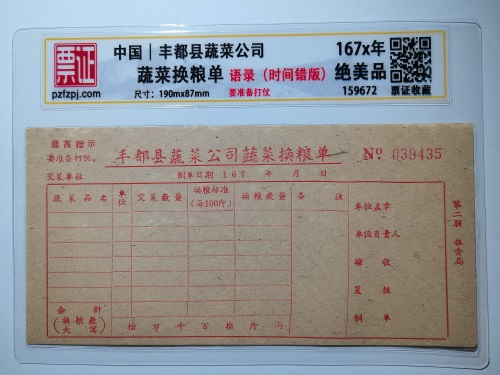 票证
pzfzpj.com
中国｜丰都县蔬菜公司
蔬菜换粮单 语录（时间错版）
尺寸：190mmx87mm 要准备打仗
167x年
绝美品
159672
票证收藏
最高指示
要准备打仗。
丰都县蔬菜公司蔬菜换粮单
No 039435
交菜单位
制单日期 167 年 月 日
蔬菜品名 单位 交菜数量 换粮标准（每100斤） 换粮数量 备注
单位盖章
单位负责人
验收
复核
制单
合计
（换粮数大写）
拾 万 千 百 拾 斤 两
第二联 粮食局